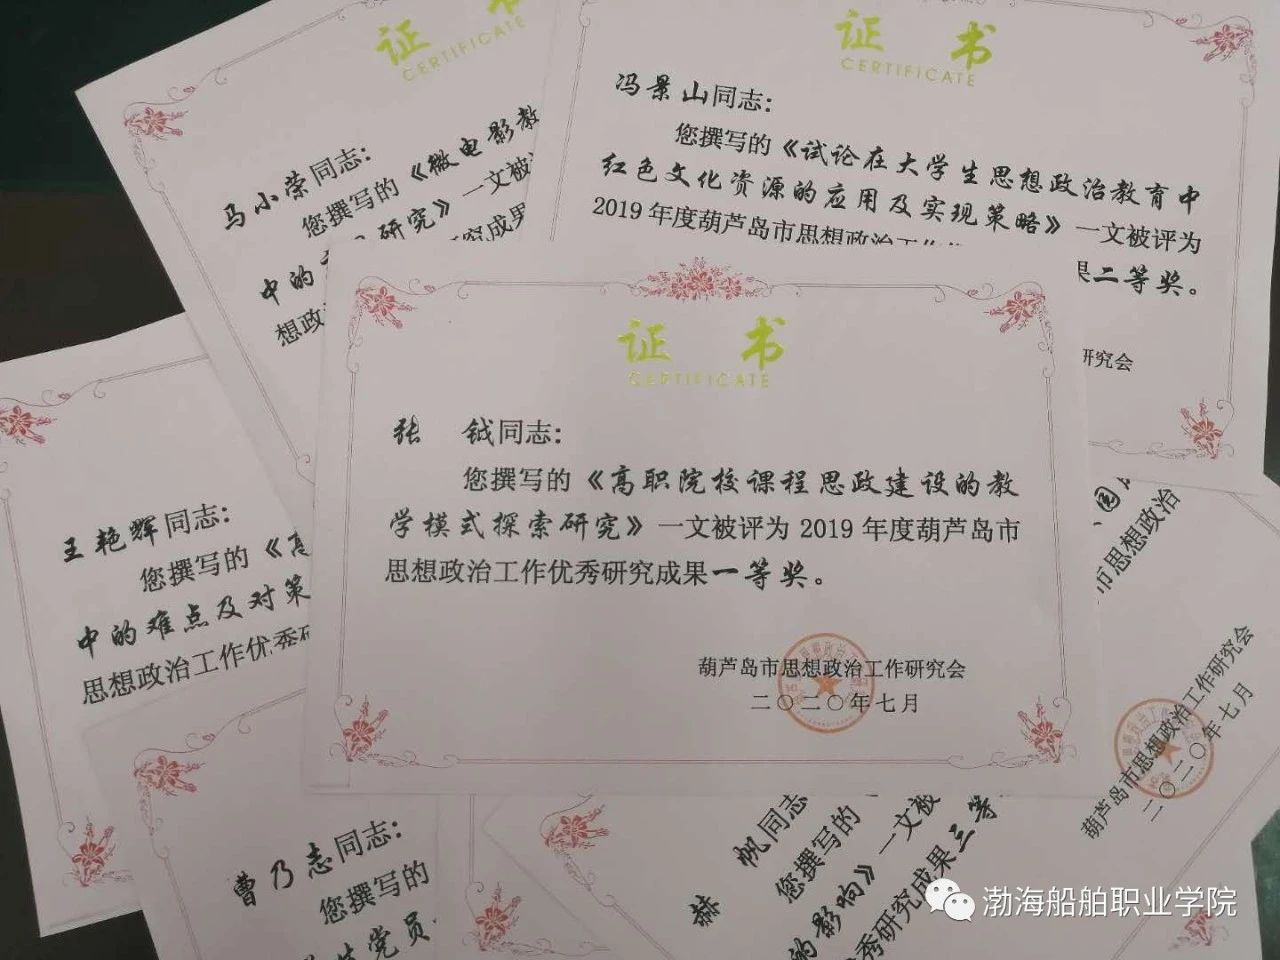 证书
CERTIFICATE
马小荣同志：
您撰写的《微电影教
中的
研究》一文被
想政
研究成果
证书
CERTIFICATE
冯景山同志：
您撰写的《试论在大学生思想政治教育中
红色文化资源的应用及实现策略》一文被评为
2019年度葫芦岛市思想政治工作
果二等奖。
研究会
证书
CERTIFICATE
张 钺同志：
您撰写的《高职院校课程思政建设的教
学模式探索研究》一文被评为2019年度葫芦岛市
思想政治工作优秀研究成果一等奖。
葫芦岛市思想政治工作研究会
二〇二〇年七月
王艳辉同志：
您撰写的《高
中的难点及对策
思想政治工作优秀研
市思想政治
葫芦岛市思想政治工作研究会
二〇二〇年七月
曹乃志同志：
您撰写的
党员
郝 帆同志
您撰写的
的影响》一文被
优秀研究成果三等
渤海船舶职业学院